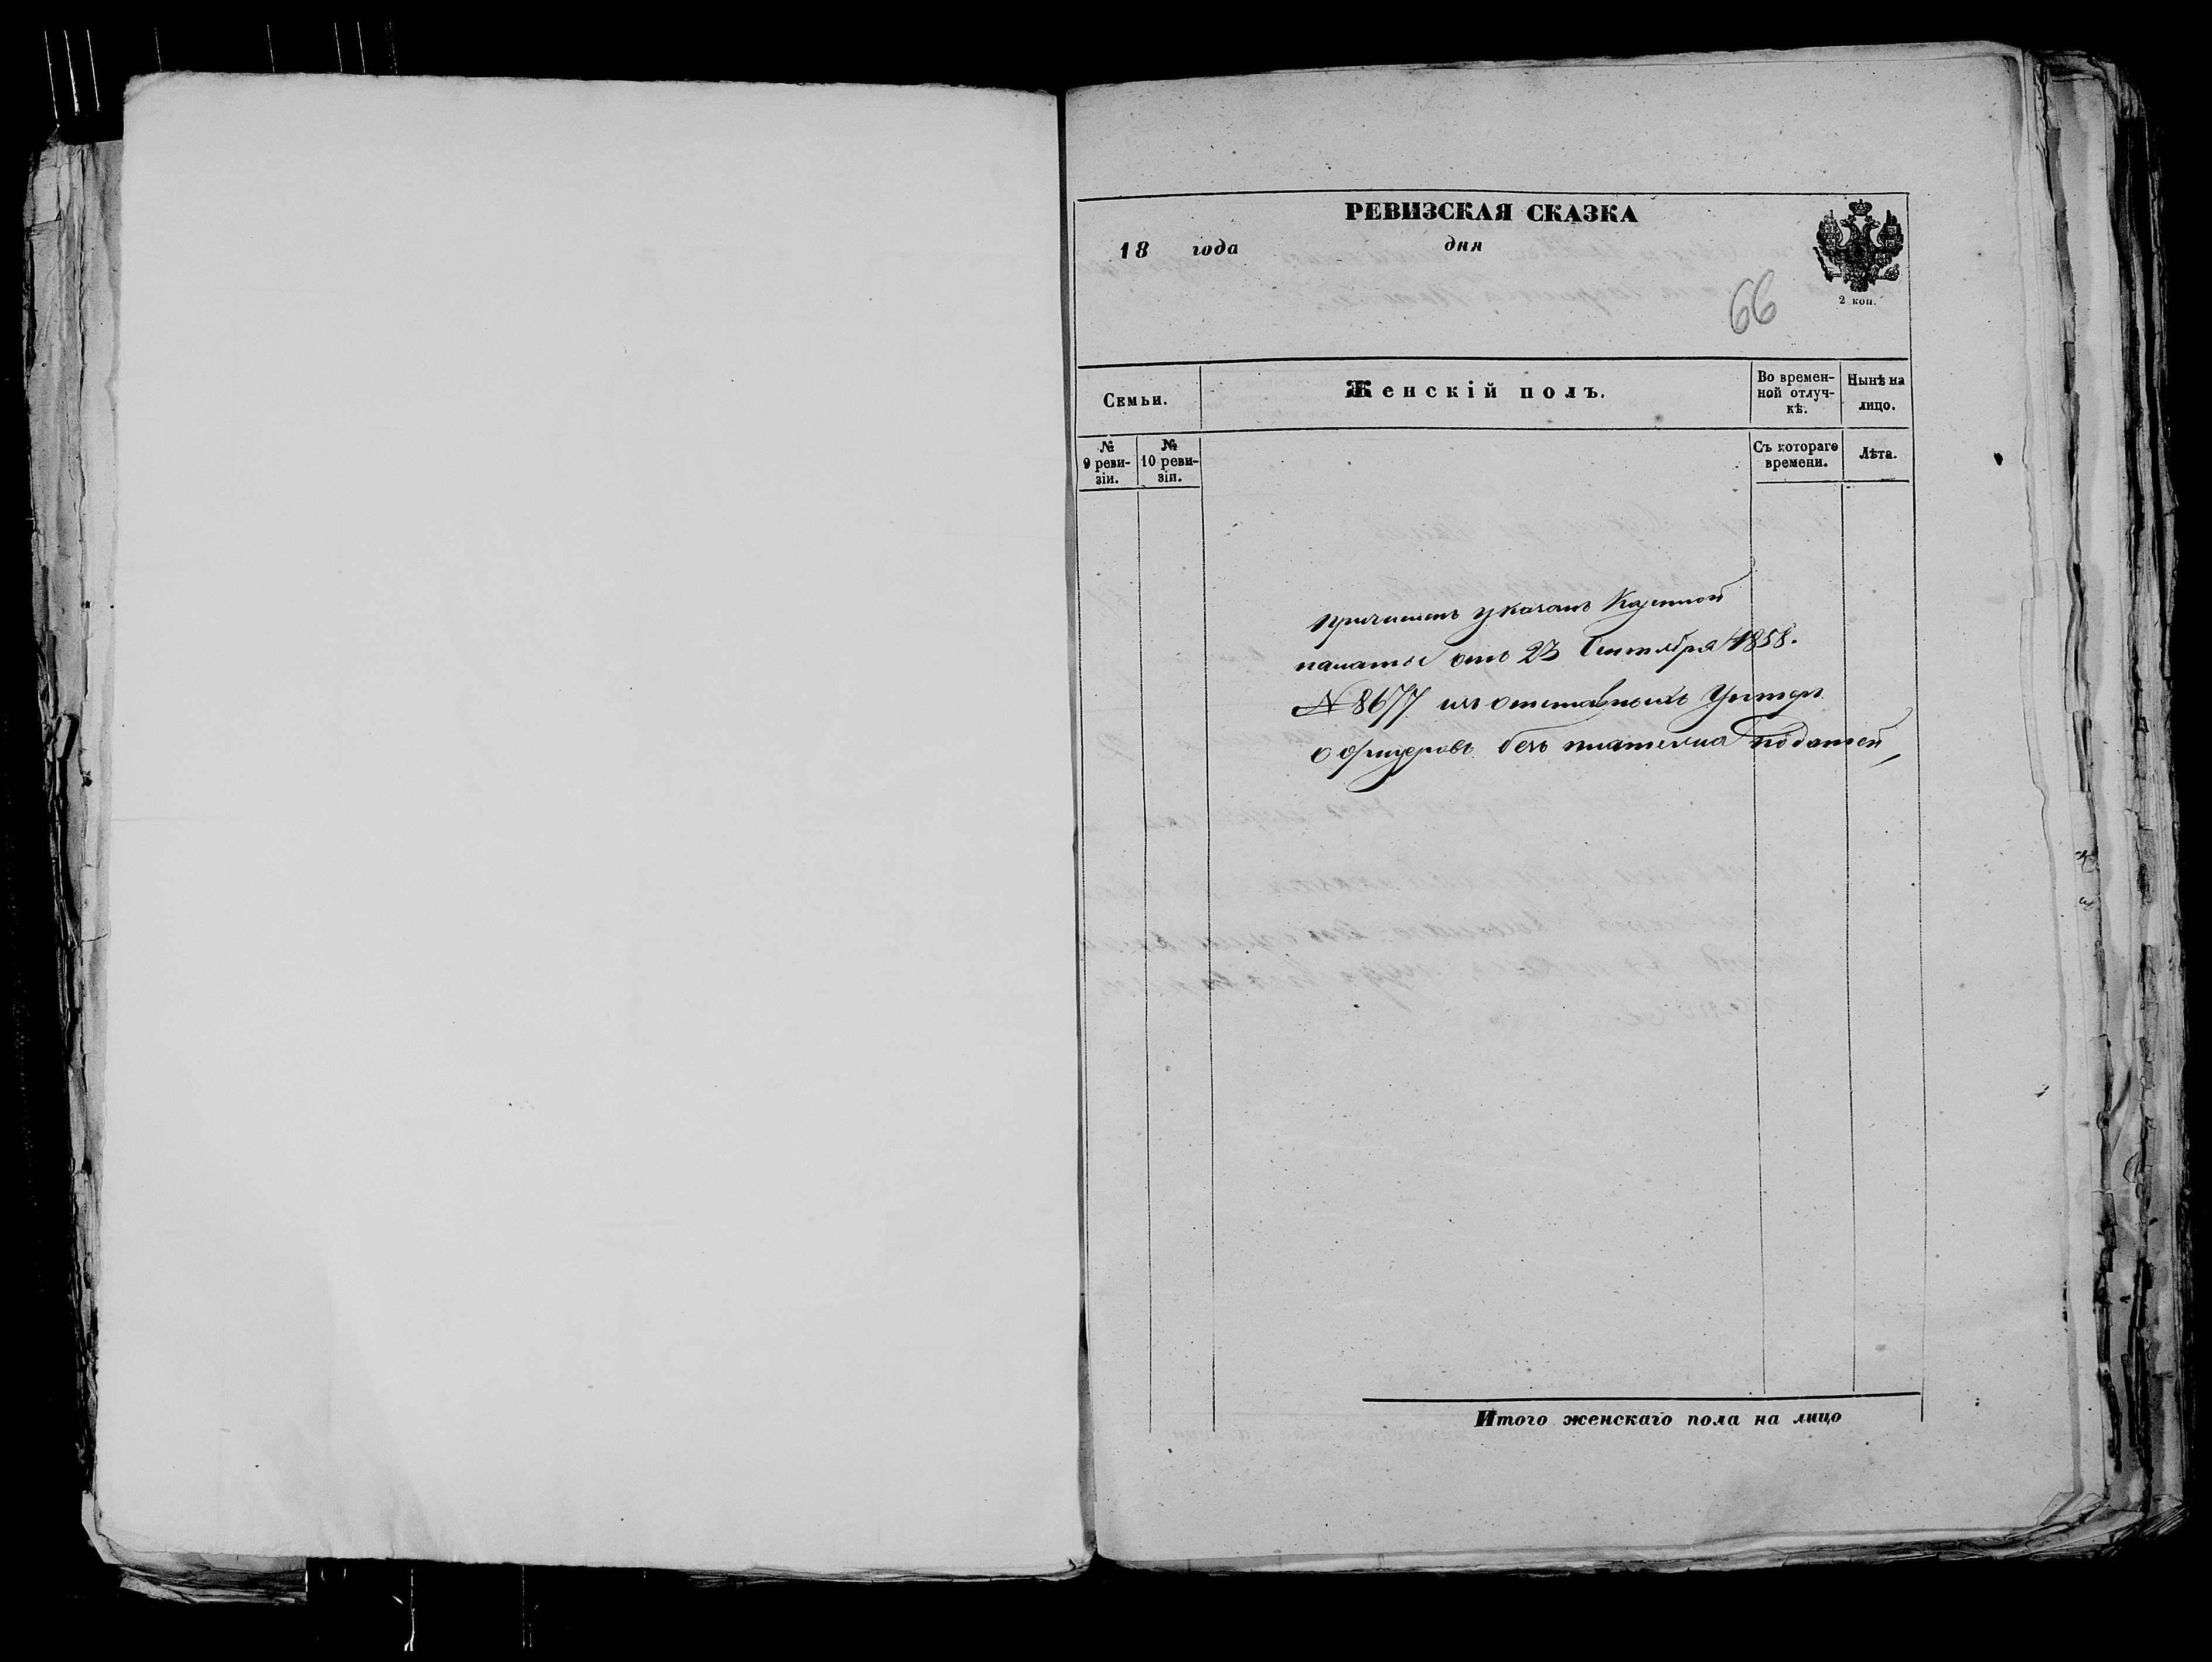 РЕВИЗСКАЯ СКАЗКА
18 года дня
2 коп.
66
Семьи.
Женскій полъ.
Во времен-
ной отлуч-
кѣ.
Нынѣ на
лицо.
№
9 реви-
зіи.
№
10 реви-
зіи.
Съ котораго
времени.
Лѣта.
причисленъ указомъ Казенной
палаты отъ 23 Сентября 1858.
№ 8677 изъ отставныхъ Унтеръ
офицеровъ безъ платежа податей
Итого женскаго пола на лицо